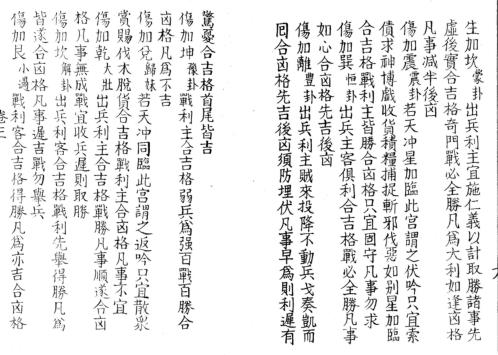 生加坎蒙卦出兵利主宜施仁義以計取勝諸事先
虛後實合吉格奇門戰必全勝凡爲大利如逢凶格
凡事減半後凶
傷加震震卦若天冲星加臨此宮謂之伏吟只宜索
債求神博戲收貨積糧捕捉斬邪伐惡如別星加臨
合吉格戰利主皆勝合凶格只宜固守凡事勿求
傷加巽恒卦出兵主客俱利合吉格戰必全勝凡事
如心合凶格先吉後凶
傷加離豐卦出兵利主賊來投降不動兵戈奏凱而
囘合凶格先吉後凶須防埋伏凡事早爲則利遲有
驚憂合吉格首尾皆吉
傷加坤豫卦戰利主合吉格弱兵爲强百戰百勝合
凶格凡爲不吉
傷加兌歸妹若天冲同臨此宮謂之返吟只宜散衆
賞賜伐木脫貨合吉格戰利主合凶格凡事不宜
傷加乾大壯出兵利主合吉格戰勝凡事順遂合凶
格凡事無成戰宜收兵遲則取勝
傷加坎解卦出兵利客合吉格戰利先舉得勝凡爲
皆遂合凶格凡事遲吉戰勿舉兵
傷加艮小過戰利客合吉格得勝凡爲亦吉合凶格
卷三